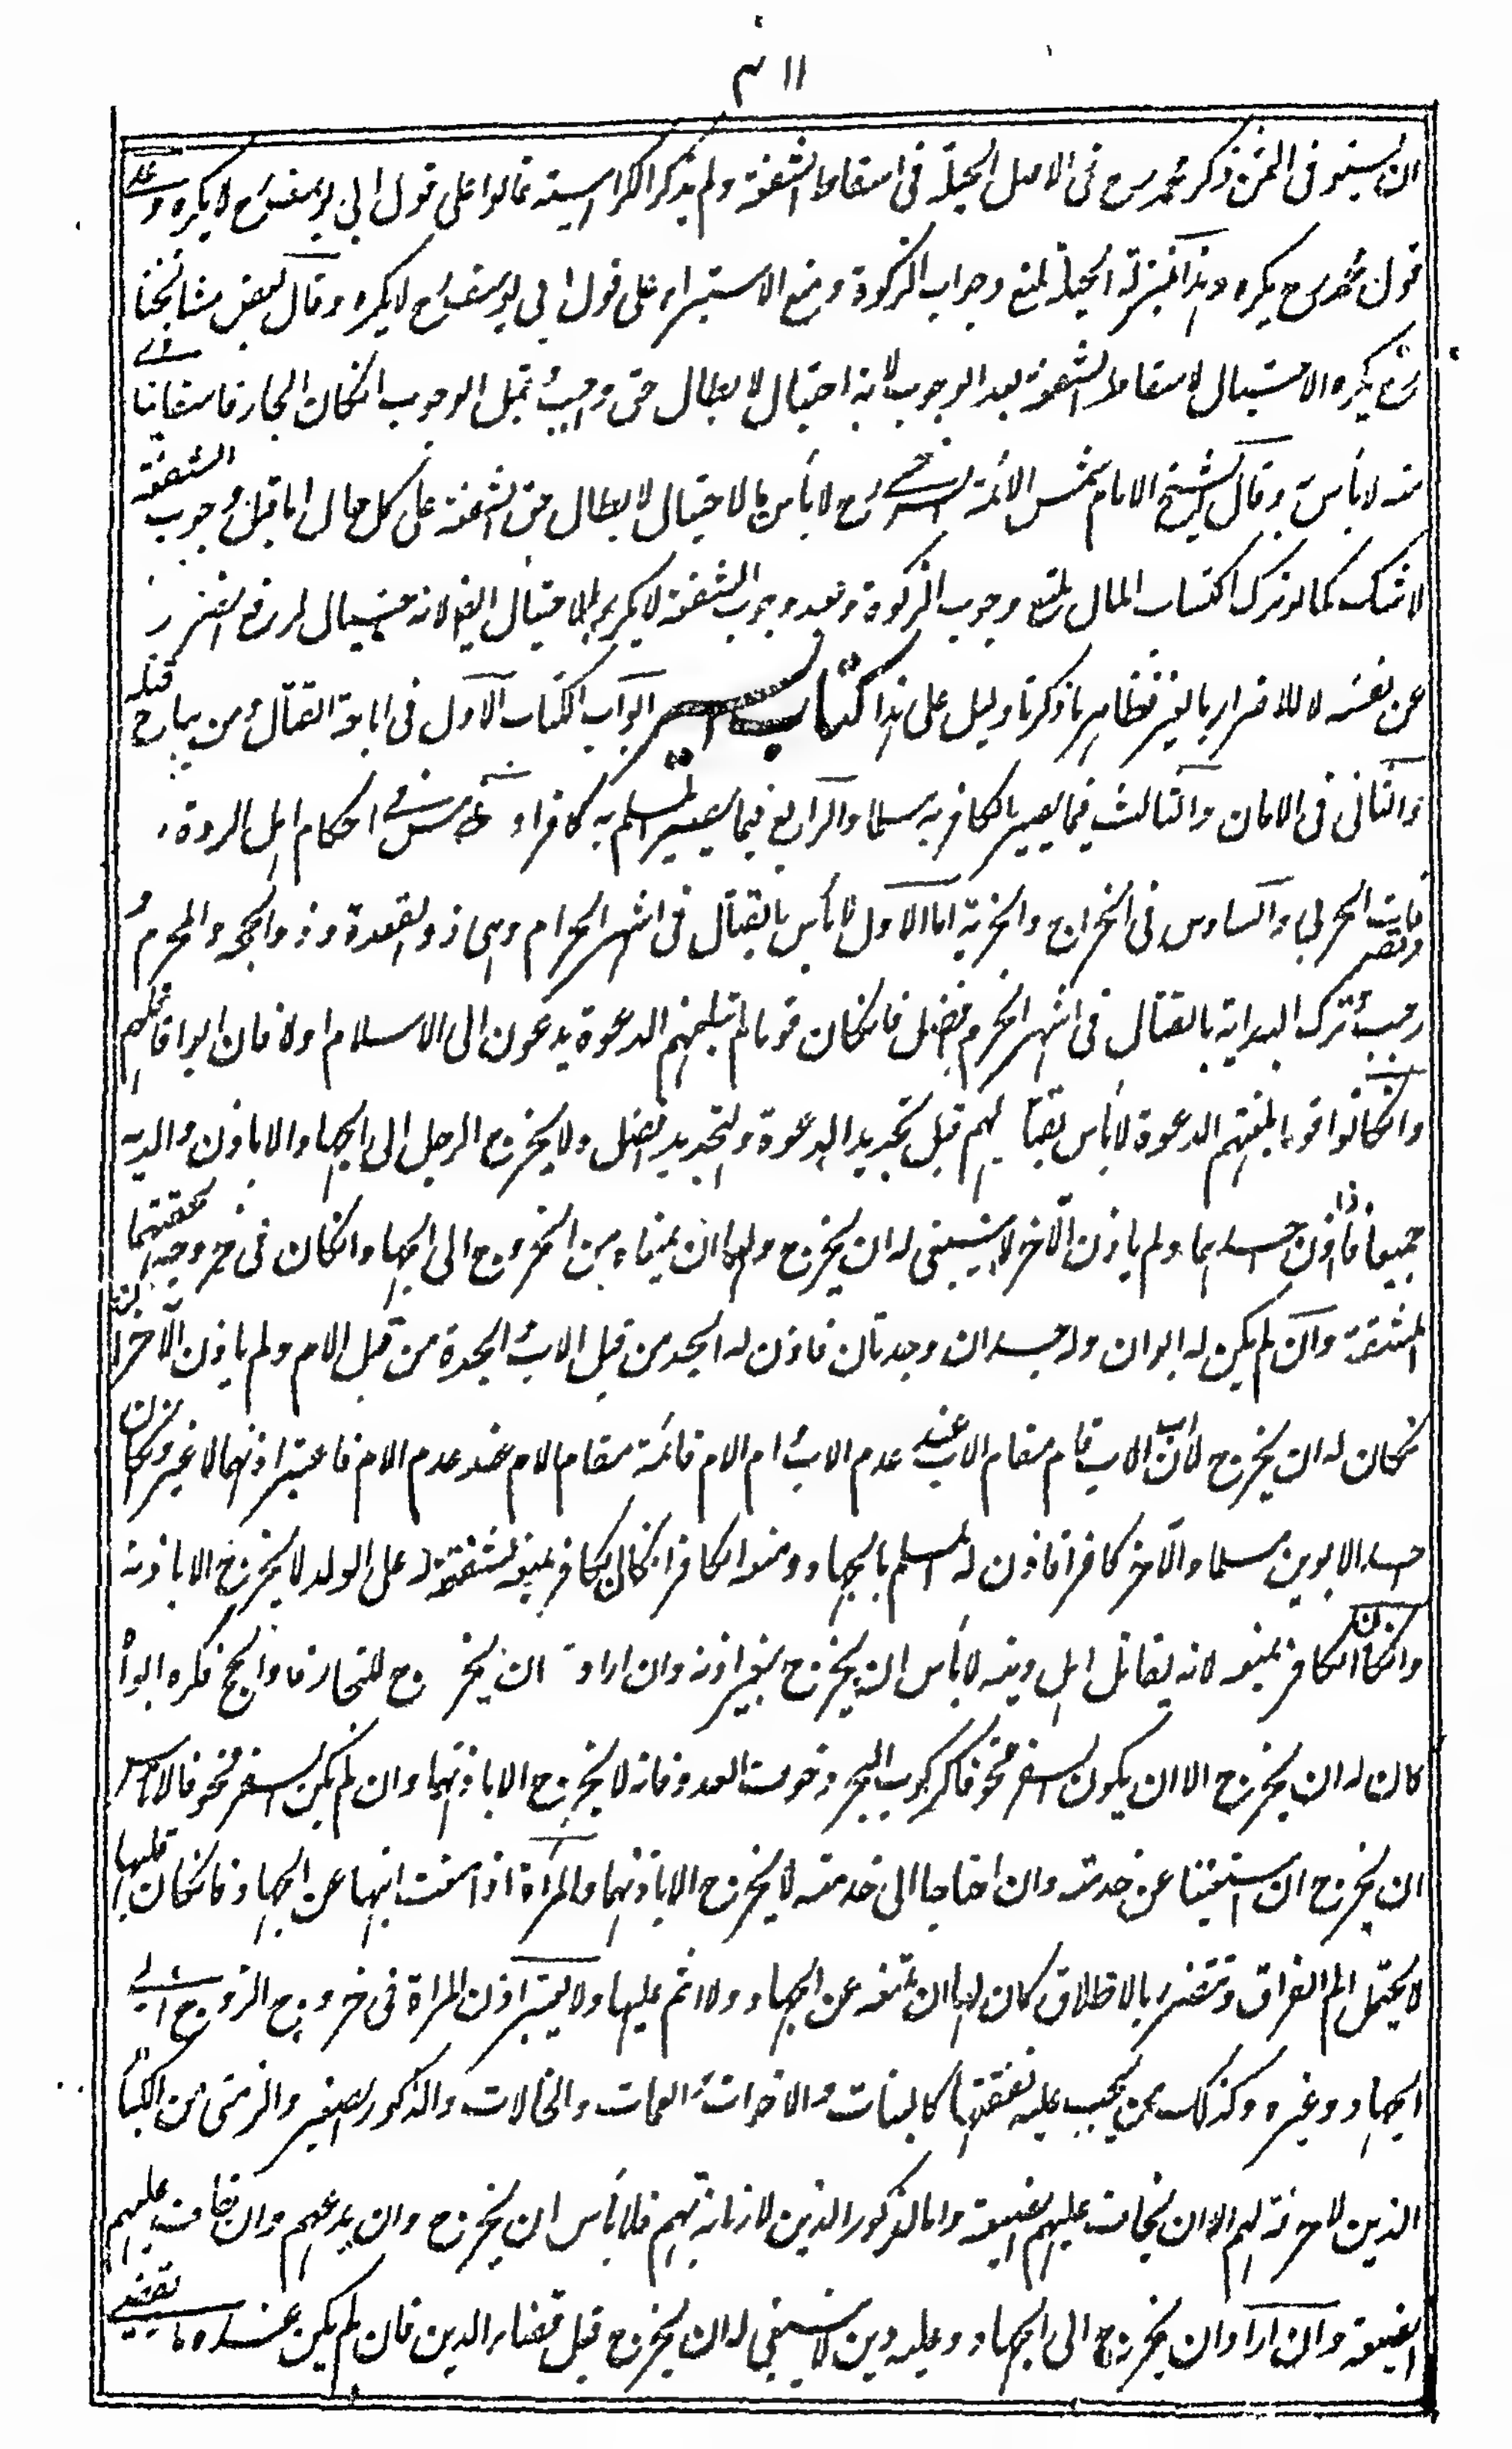 ٣١١
ان يستوفى الثمن ذكر محمد رح فى الاصل الحيلة فى اسقاط الشفعة ولم يذكر الكراهية قالوا على قول ابى يوسف رح لا يكره وعلى
قول محمد رح يكره وهذا بمنزلة الحيلة لمنع وجوب الزكوة ومنع الاستبراء على قول ابى يوسف رح لا يكره وقال بعض مشايخنا
رح يكره الاحتيال لاسقاط الشفعة بعد الوجوب لانه احتيال لابطال حق واجب وقبل الوجوب انكان الجار فاسقا يتأذى
منه لا بأس به وقال الشيخ الامام شمس الائمة السرخسى رح لا بأس بالاحتيال لابطال حق الشفعة على كل حال اما قبل وجوب الشفعة
لا شك كما لو ترك اكتساب المال لمنع وجوب الزكوة وبعد وجوب الشفعة لا يكره الاحتيال ايضا لانه احتيال لدفع الضرر
عن نفسه لا للاضرار بالغير فظاهر ما ذكرنا دليل على هذا كتاب السير ابواب الكتاب الاول فى اباحة القتال ومن يباح قتله
والثانى فى الامان والثالث فيما يصير الكافر به مسلما والرابع فيما يصير المسلم به كافرا والخامس فى احكام اهل الردة
والسادس فى الخراج والجزية اما الاول لا بأس بالقتال فى اشهر الحرام وهى ذو القعدة وذو الحجة والمحرم و
رجب وترك البداية بالقتال فى اشهر الحرم افضل فانكان قوما لم تبلغهم الدعوة يدعون الى الاسلام اولا فان ابوا قاتلهم
وانكانوا قوما بلغتهم الدعوة لا بأس بقتالهم قبل تجديد الدعوة والتجديد افضل ولا يخرج الرجل الى الجهاد الا باذن والديه
جميعا فاذا اذن احدهما ولم يأذن الآخر لا ينبغى له ان يخرج ولهما ان يمنعاه من الخروج الى الجهاد انكان فى خروجه تلحقهما
المشقة وان لم يكن له ابوان وله جدان وجدتان فاذن له الجد من قبل الاب والجدة من قبل الام ولم يأذن الآخران
كان له ان يخرج لان اب الاب قام مقام الاب عند عدم الاب وام الام قائمة مقام الام عند عدم الام فاعتبر اذنهما لا غير وانكان
احد الابوين مسلما والآخر كافرا فاذن له المسلم بالجهاد ومنعه الكافر انكان الكافر يمنعه لشفقته على الولد لا يخرج الا باذنه
وانكان الكافر يمنعه لانه يقاتل اهل دينه لا بأس ان يخرج بغير اذنه وان اراد ان يخرج للتجارة او الحج فكره ابواه
كان له ان يخرج الا ان يكون السفر مخوفا كركوب البحر وخوف العدو فانه لا يخرج الا باذنهما وان لم يكن السفر مخوفا لا بأس
ان يخرج ان استغنيا عن خدمته وان احتاجا الى خدمته لا يخرج الا باذنهما والمرأة اذا منعت ابنها عن الجهاد فانكان قلبها
لا يحتمل الم الفراق وتتضرر بالاطلاق كان لها ان تمنعه عن الجهاد ولا اثم عليها ولا يعتبر اذن المرأة فى خروج الزوج الى
الجهاد وغيره وكذلك من يجب عليه نفقتها كالبنات والاخوات والعمات والخالات والذكور الصغير والزمنى من الكبار
الذين لا حرفة لهم الا ان يخاف عليهم الضيعة واما الذكور الذين لا زمانة بهم فلا بأس ان يخرج وان يدعهم وان خاف عليهم
الضيعة وان اراد ان يخرج الى الجهاد وعليه دين لا ينبغى له ان يخرج قبل قضاء الدين فان لم يكن عنده ما يقضى